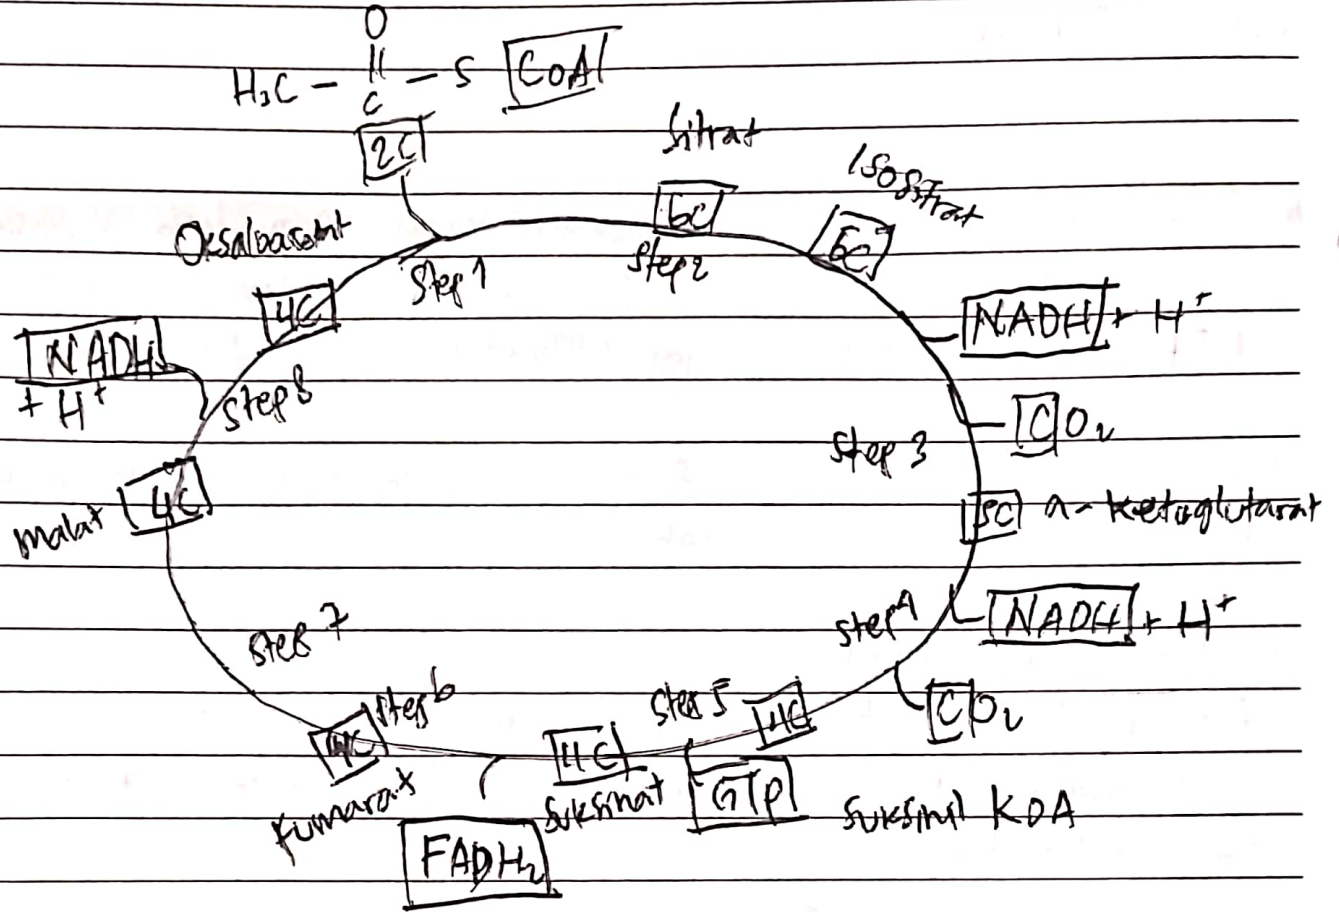 O
||
H₃C - C - S CoA
2C
Sitrat
Isositrat
6C
6C
Oksaloasetat
Step 1
Step 2
4C
NADH + H⁺
NADH
+ H⁺
Step 8
CO₂
Step 3
4C
5C α-ketoglutarat
Malat
Step 4
NADH + H⁺
Step 7
Step 6
Step 5
4C
CO₂
4C
4C
Fumarat
Suksinat
GTP
Suksinil KOA
FADH₂